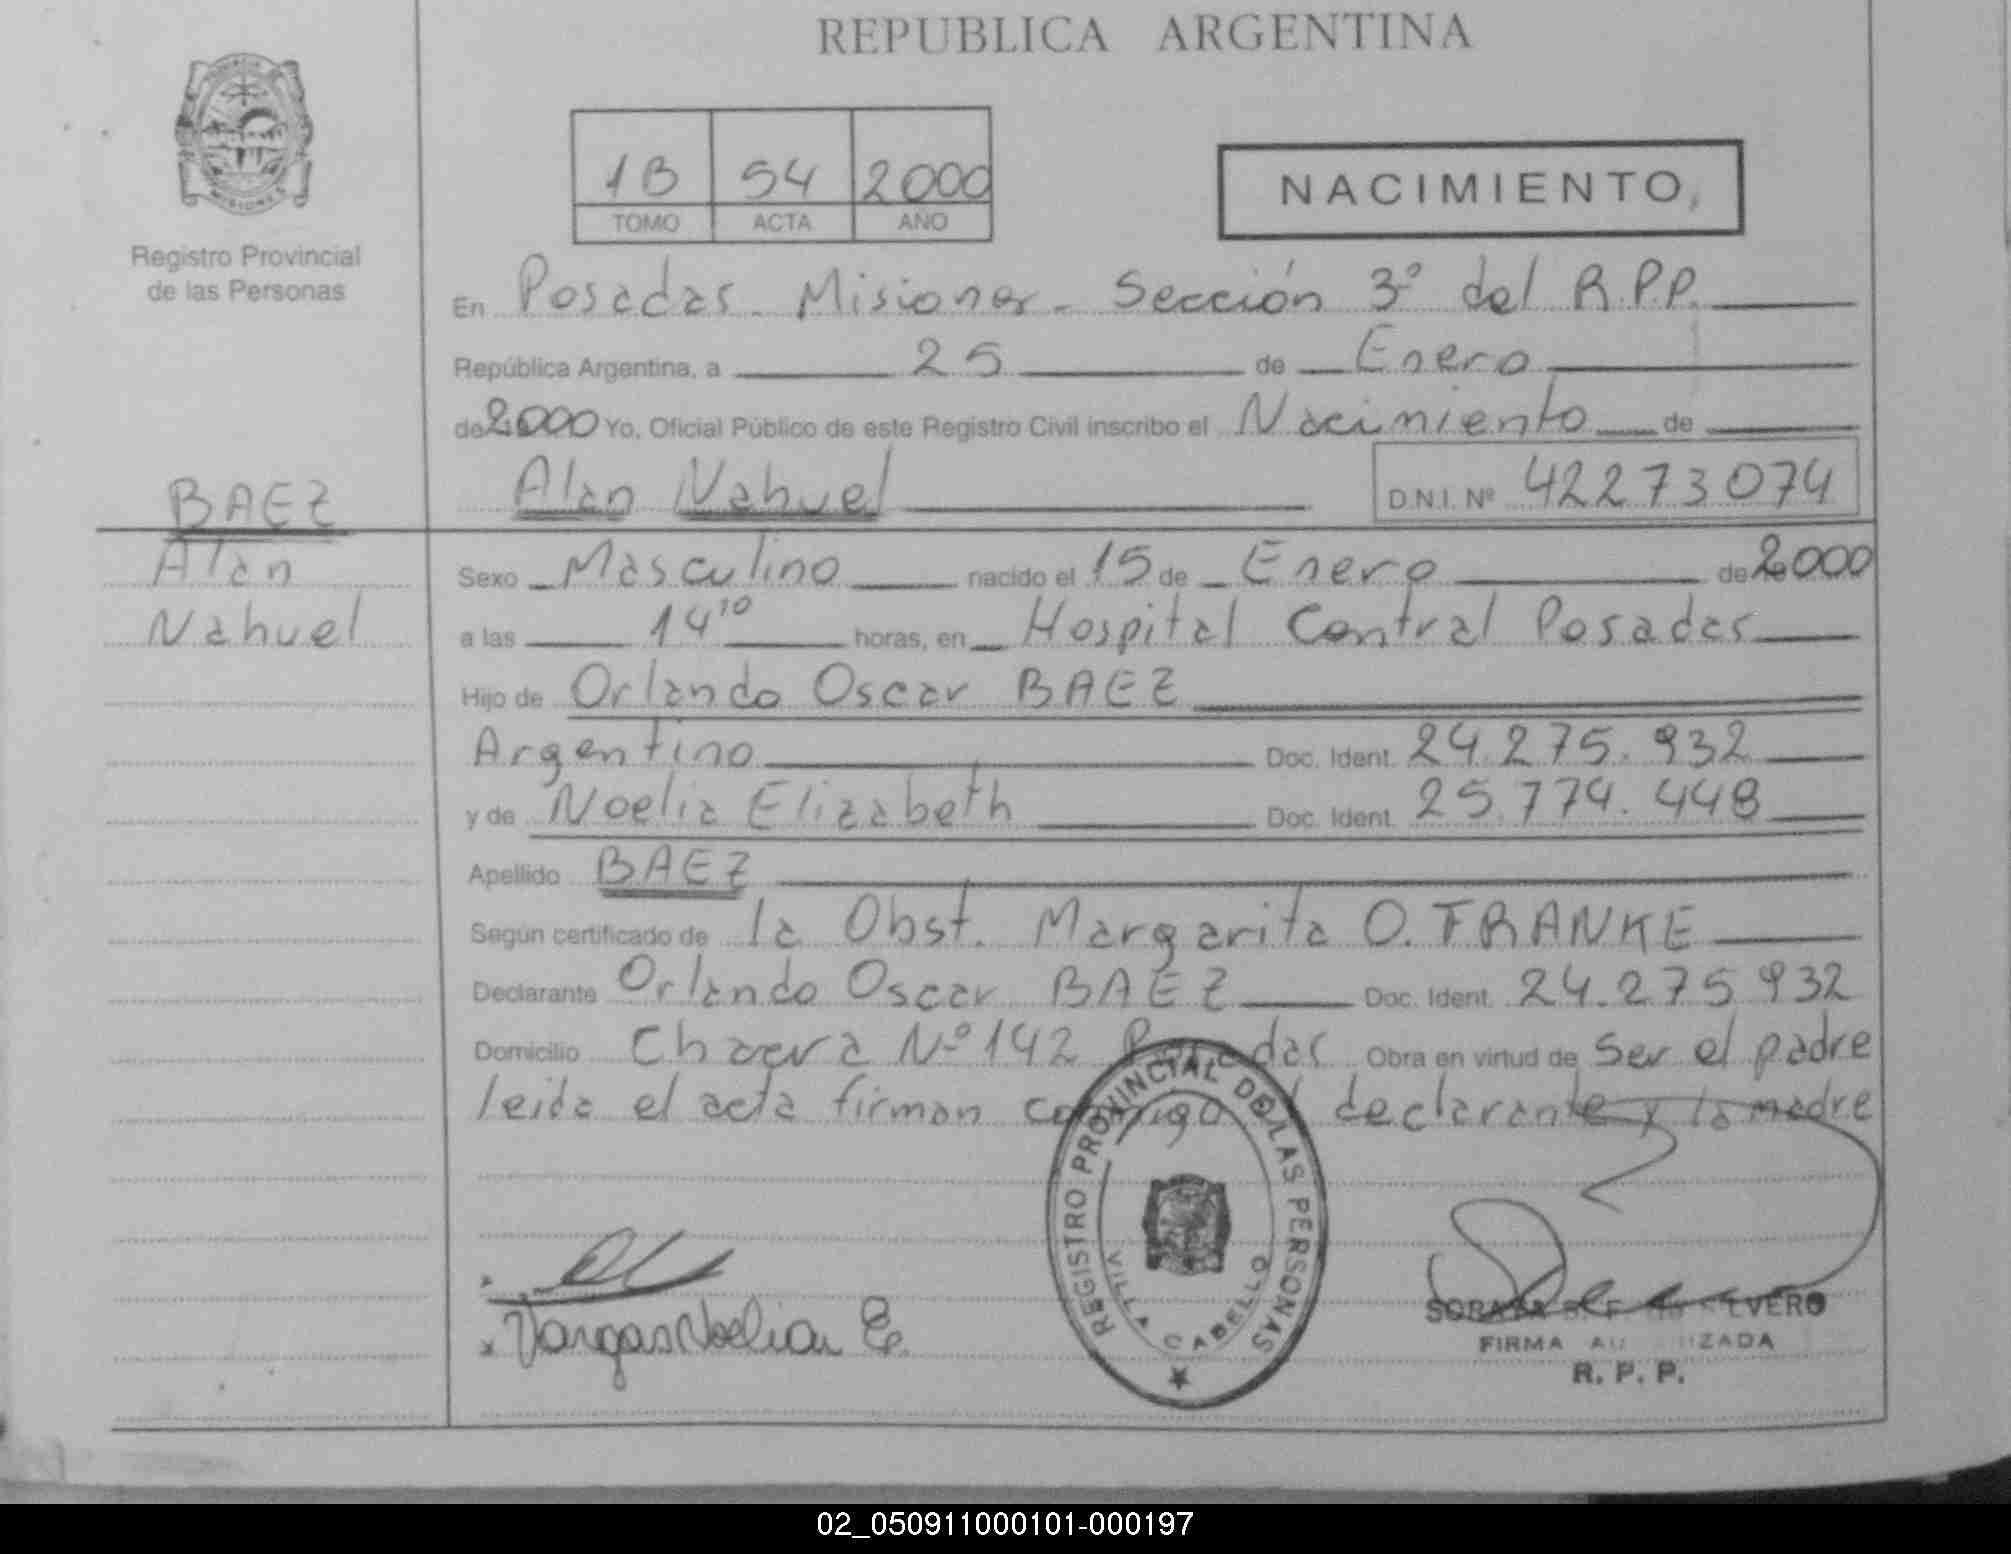 REPUBLICA ARGENTINA
1B 54 2000
TOMO ACTA AÑO
NACIMIENTO
Registro Provincial
de las Personas
En Posadas - Misiones - Sección 3º del R.P.P.
República Argentina, a 25 de Enero
de 2000 Yo, Oficial Público de este Registro Civil inscribo el Nacimiento de
Alan Nahuel D.N.I. Nº 42273074
BAEZ
Alan
Nahuel
Sexo Masculino nacido el 15 de Enero de 2000
a las 14 10 horas, en Hospital Central Posadas
Hijo de Orlando Oscar BAEZ
Argentino Doc. Ident. 24.275.932
y de Noelia Elizabeth Doc. Ident. 25.774.448
Apellido BAEZ
Según certificado de la Obst. Margarita O. FRANKE
Declarante Orlando Oscar BAEZ Doc. Ident. 24.275.932
Domicilio Chacra Nº 142 Posadas Obra en virtud de Ser el padre
leida el acta firman conmigo el declarante y la madre
REGISTRO PROVINCIAL DE LAS PERSONAS
VILLA CABELLO
Vargas Noelia E.
FIRMA AUTORIZADA
R. P. P.
02_050911000101-000197